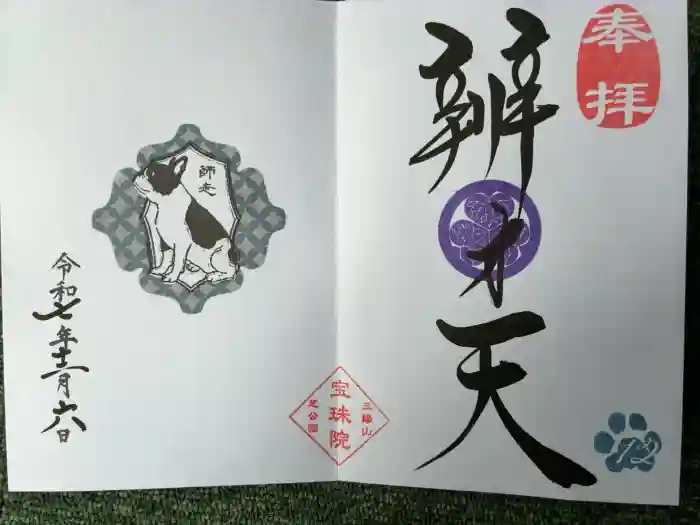 奉拝
辨才天
12
三縁山
宝珠院
芝公園
師走
令和七年十二月六日